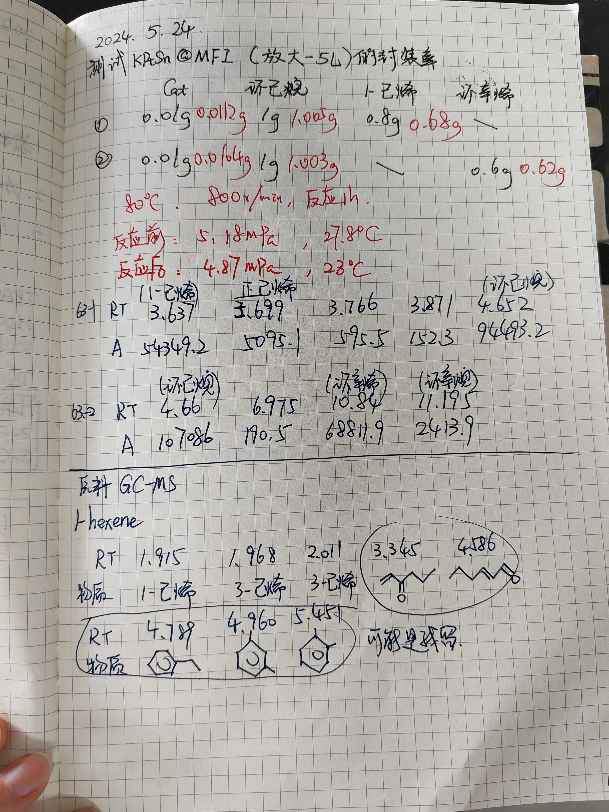 2024. 5. 24.
测试 KPtSn@MFI (放大-5L)的封装率
Cat 环己烷 1-己烯 环辛烯
① 0.01g 0.0112g 1g 1.005g 0.8g 0.68g \
② 0.01g 0.0164g 1g 1.003g \ 0.6g 0.62g
80℃. 800r/min, 反应1h.
反应前: 5.18MPa, 27.8℃
反应后: 4.87MPa, 28℃
(1-己烯) 正己烯 (环己烷)
RT 3.637 3.699 3.766 3.871 4.652
A 54349.2 5095.1 595.5 152.3 94493.2
(环己烷) (环辛烯) (环辛烷)
RT 4.66 6.975 10.84 11.195
A 107086 190.5 68811.9 2413.9
原料 GC-MS
1-hexene
RT 1.915 1.968 2.011 3.345 4.586
物质 1-己烯 3-己烯 3-己烯 O O
RT 4.789 4.960 5.451 可能是残留.
物质